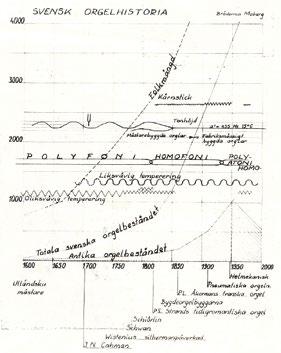 SVENSK ORGELHISTORIA
Bröderna Moberg
4000
Folkmängd
3000
Kärnstick
Tonhöjd
a'= 435 Hz 15°C
Mästarebyggda orglar
Fabriksmässigt byggda orglar
2000
POLYFONI HOMOFONI POLY-
ATONI
HOMO-
Liksvävig temperering
Oliksvävig temperering
1000
Totala svenska orgelbeståndet
Antika orgelbeståndet
1600 1650 1700 1750 1800 1850 1900 1950 2000
Utländska mästare
Helmekanisk
Pneumatiska orgeln
PL. Åkermans franska orgel
Bygdeorgelbyggarna
P.S. Strands tidigromantiska orgel
Schiörlin
Schwan
Wistenius silbermanpåverkad
J.N. Cahman